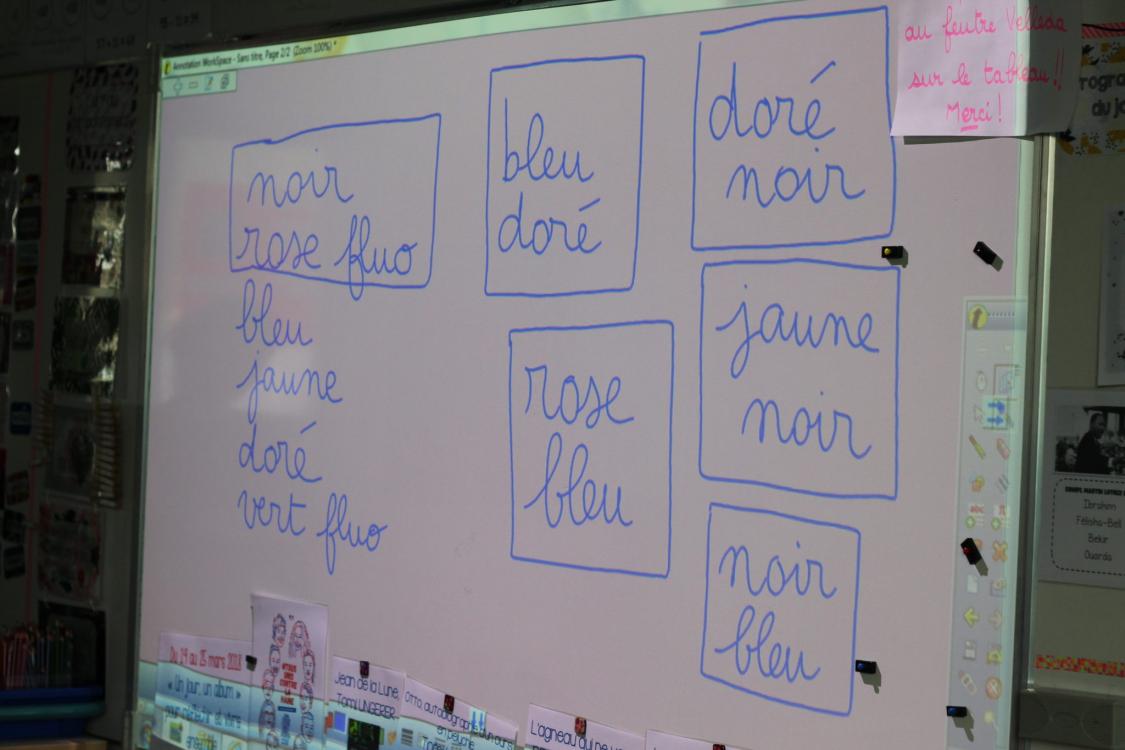 Annotation WorkSpace - Sans titre, Page 2/2 (Zoom 100%) *
noir
rose fluo
bleu
jaune
doré
vert fluo
bleu
doré
rose
bleu
doré
noir
jaune
noir
noir
bleu
au feutre Velleda
sur le tableau !!
Merci !
du
Ibrahem
Bekir
Ouarda
Du 19 au 25 mars 2018
« Un jour, un album »
ensemble
Jean de la Lune,
Tomi UNGERER
Otto, autobiographie d'un ours
en peluche
L'agneau qui ne